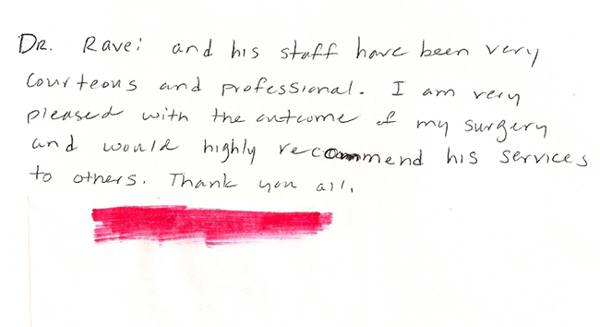 DR. Ravei and his staff have been very
courteous and professional. I am very
pleased with the outcome of my surgery
and would highly recommend his services
to others. Thank you all.